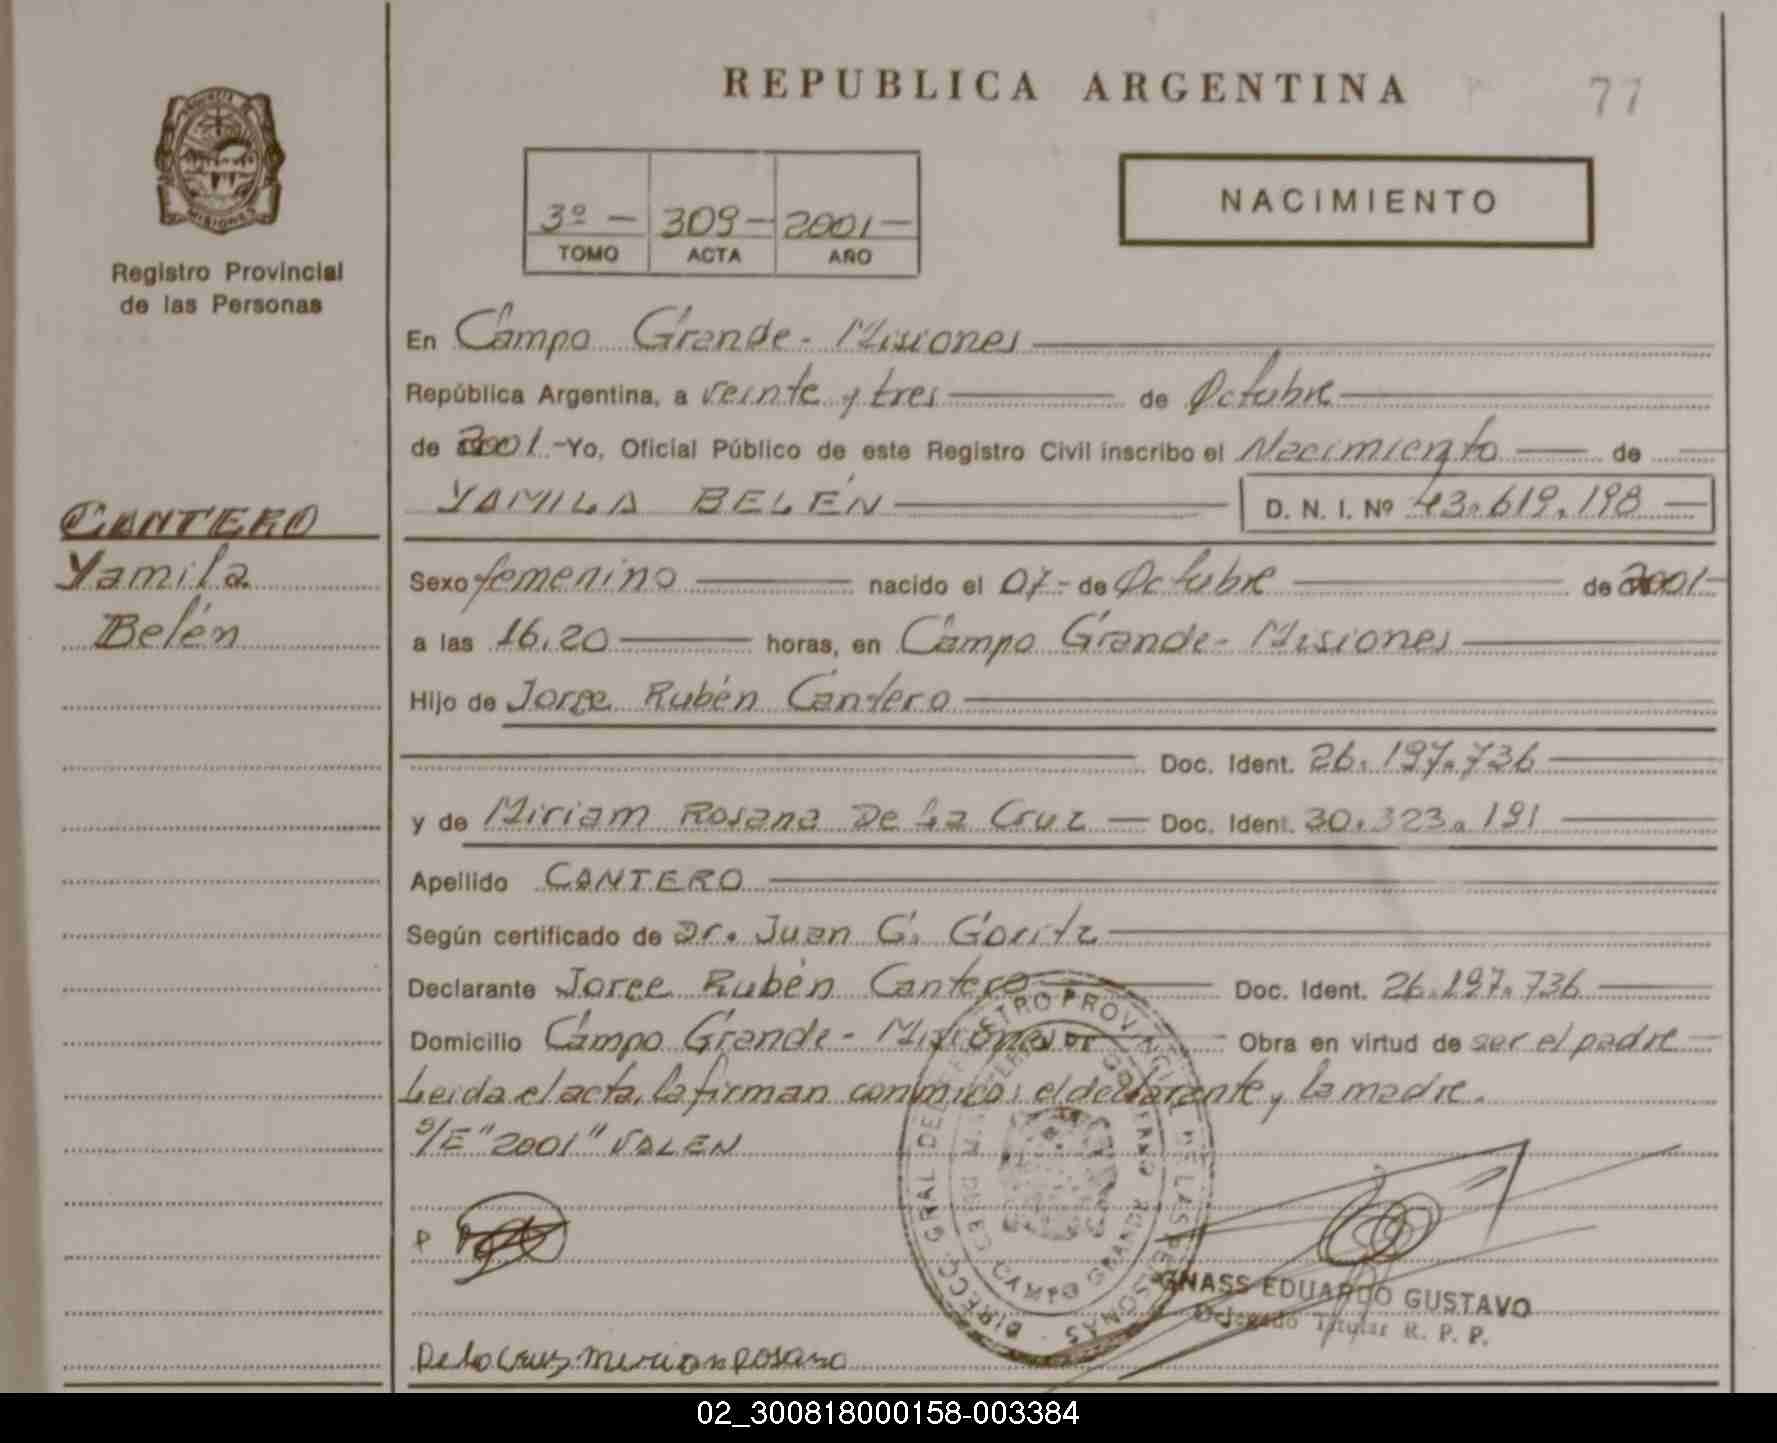 REPUBLICA ARGENTINA
77
3º - 309 - 2001 -
TOMO ACTA AÑO
NACIMIENTO
MISIONES
Registro Provincial
de las Personas
CANTERO
Yamila
Belén
En Campo Grande - Misiones
República Argentina, a veinte y tres de Octubre
de 2001.- Yo, Oficial Público de este Registro Civil inscribo el Nacimiento de
YAMILA BELÉN D. N. I. Nº 43.619.198
Sexo femenino nacido el 07- de Octubre de 2001-
a las 16,20 horas, en Campo Grande - Misiones
Hijo de Jorge Rubén Cantero
Doc. Ident. 26.197.736
y de Miriam Rosana De La Cruz Doc. Ident. 30.323.191
Apellido CANTERO
Según certificado de Dr. Juan G. Goritz
Declarante Jorge Rubén Cantero Doc. Ident. 26.197.736
Domicilio Campo Grande - Misiones Obra en virtud de ser el padre
Leida el acta, la firman conmigo: el declarante y la madre.
S/E "2001" VALEN
DIRECC. GRAL DEL REGISTRO PROVINCIAL DE LAS PERSONAS
CAMPO GRANDE
P
GNASS EDUARDO GUSTAVO
Delegado Titular R. P. P.
De la Cruz Mirian Rosana
02_300818000158-003384